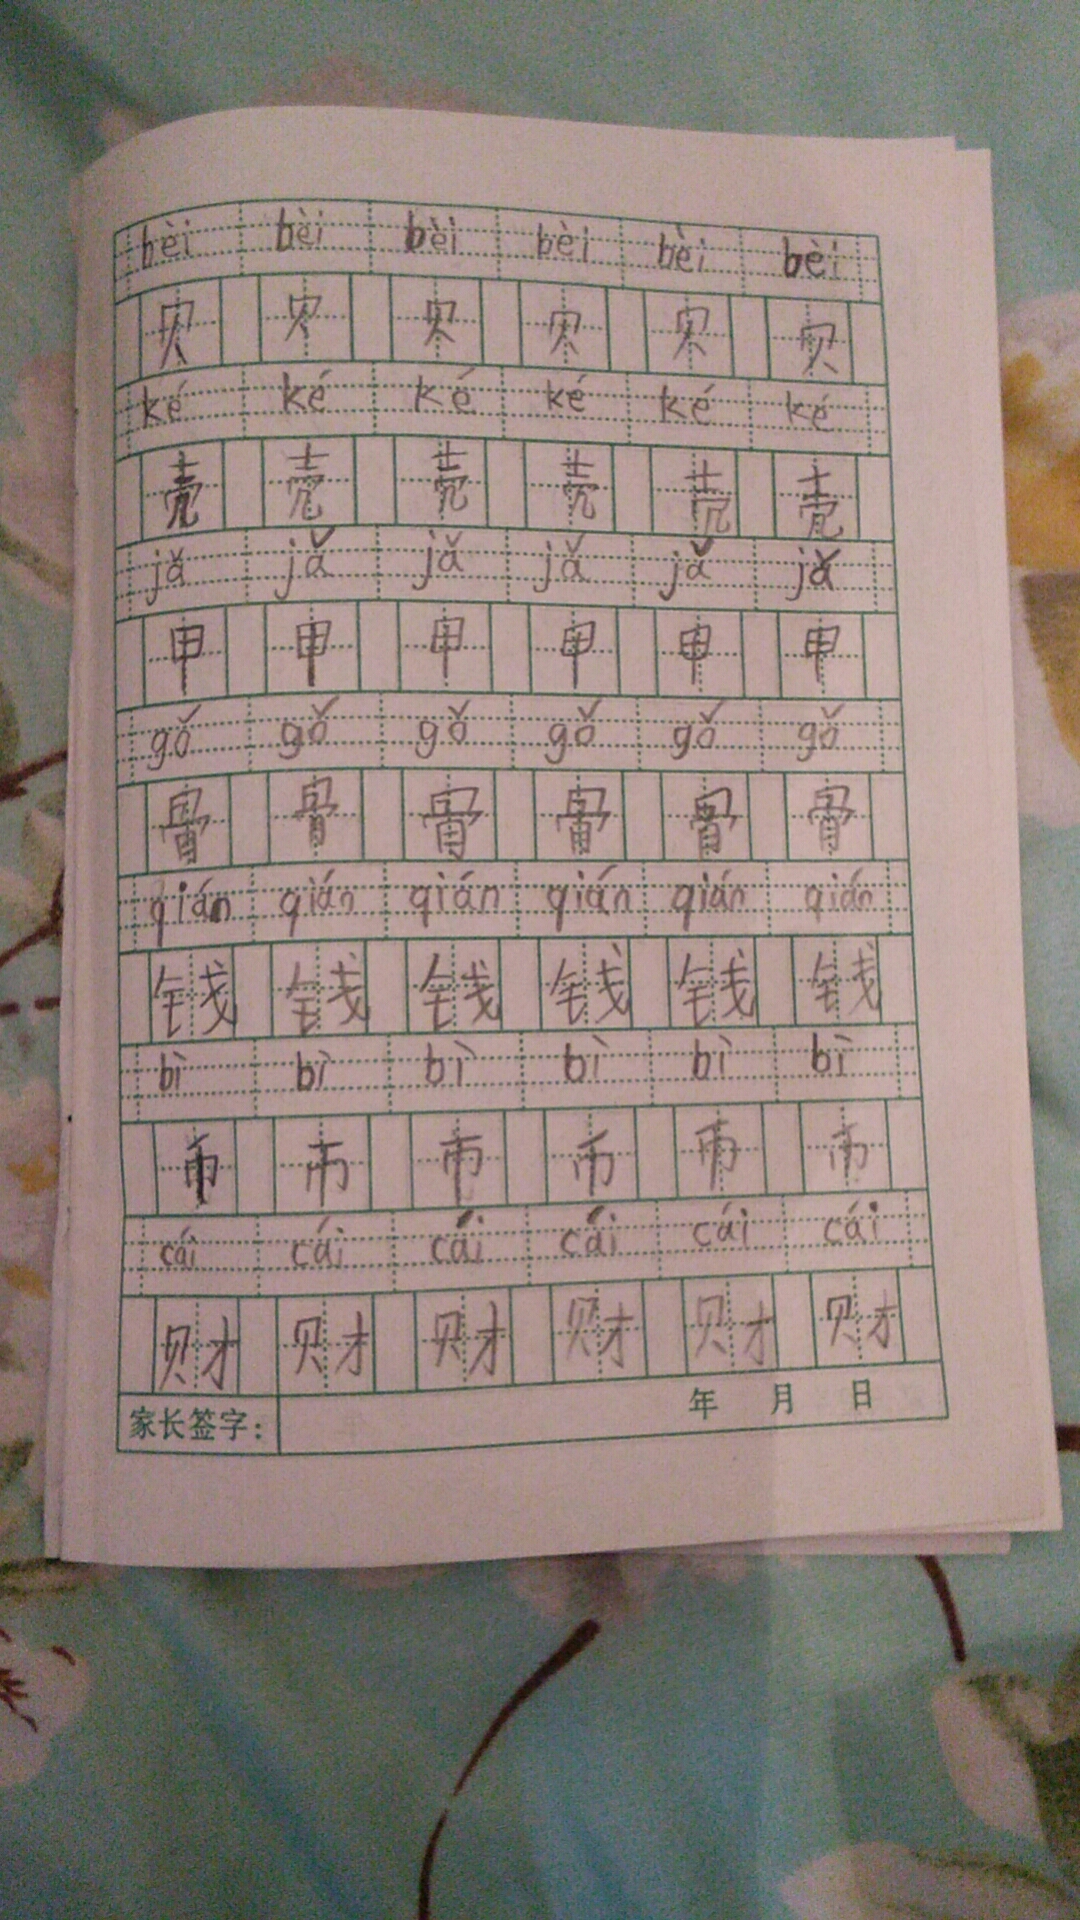 bèi bèi bèi bèi bèi bèi
贝 贝 贝 贝 贝 贝
ké ké ké ké ké ké
壳 壳 壳 壳 壳 壳
jǎ jǎ jǎ jǎ jǎ jǎ
甲 甲 甲 甲 甲 甲
gǒ gǒ gǒ gǒ gǒ gǒ
骨 骨 骨 骨 骨 骨
qián qián qián qián qián qián
钱 钱 钱 钱 钱 钱
bì bì bì bì bì bì
币 币 币 币 币 币
cái cái cái cái cái cái
财 财 财 财 财 财
家长签字: 年 月 日